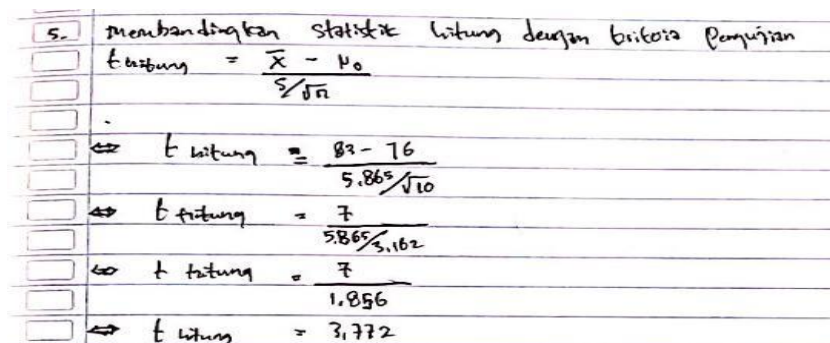 5. membandingkan statistik hitung dengan kriteria pengujian
t hitung = x̄ - μ₀
s/√n
⇔ t hitung = 83 - 76
5,865/√10
⇔ t hitung = 7
5.865/3,162
⇔ t hitung = 7
1.856
⇔ t hitung = 3,772